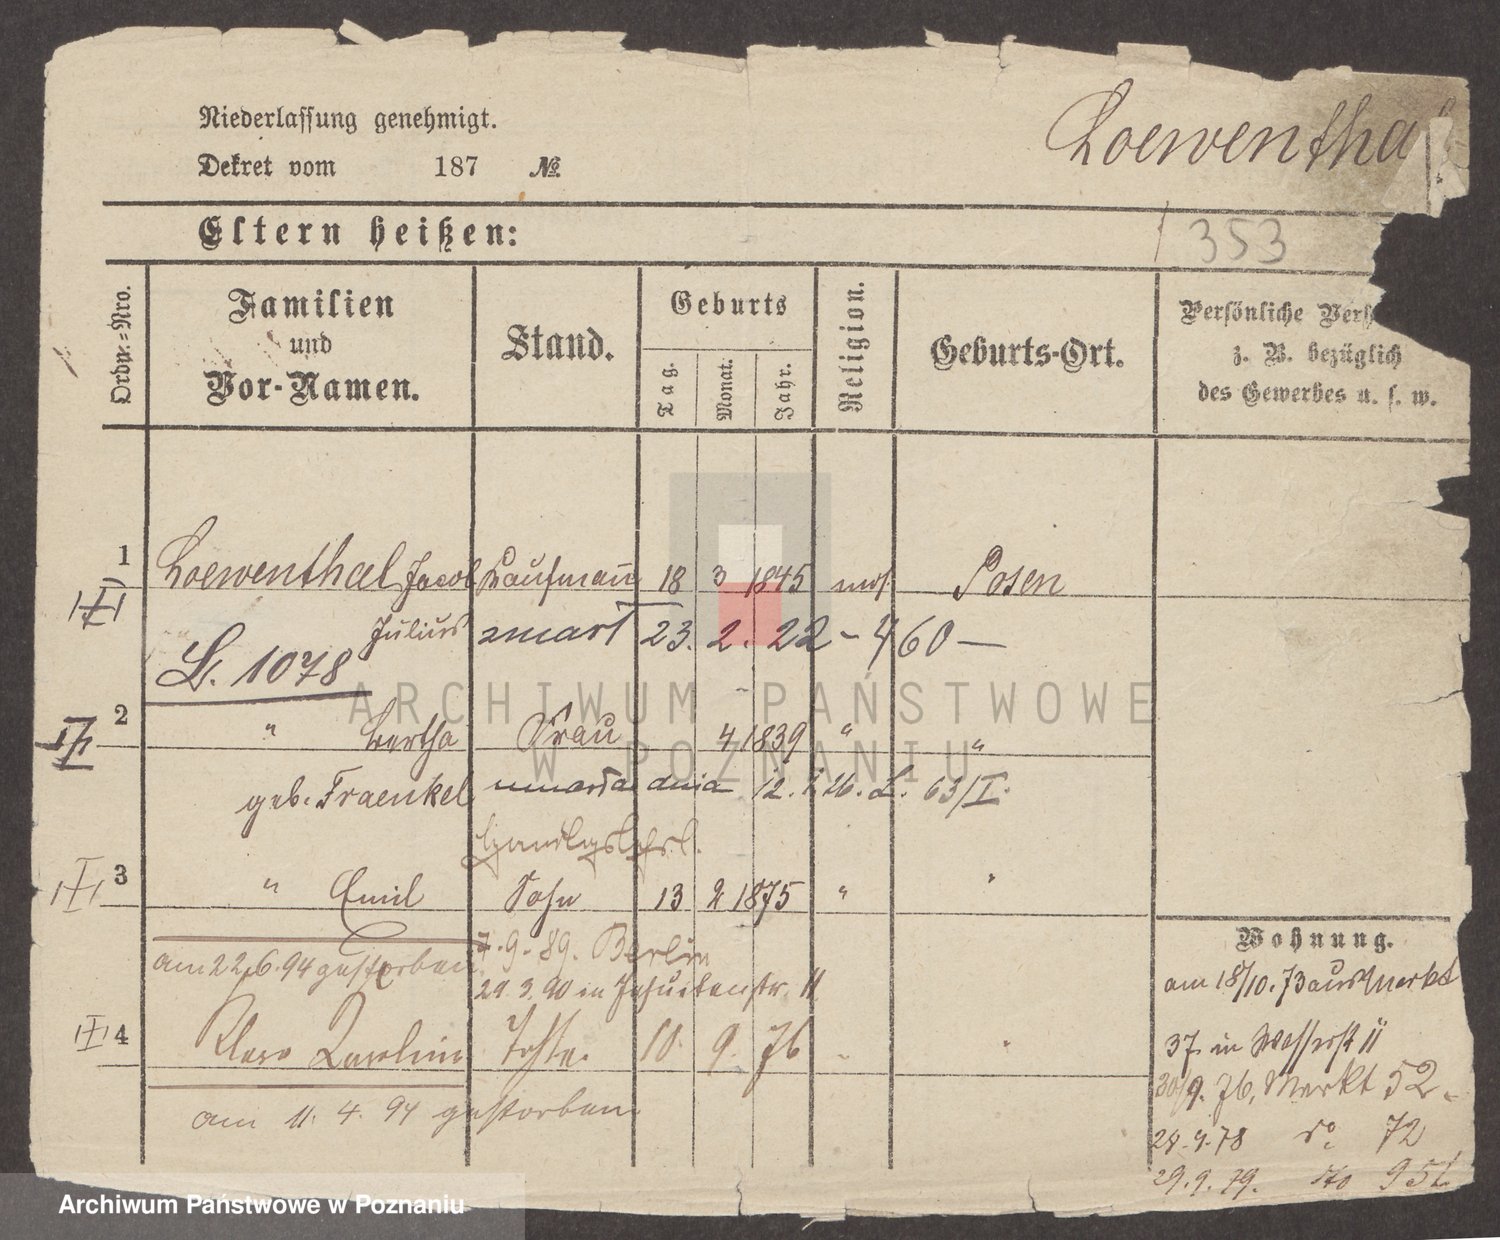 Niederlassung genehmigt.
Dekret vom 187 №
Loewentha
Eltern heißen:
353
Ordn.-Nro.
Familien und Vor-Namen.
Stand.
Geburts
Tag.
Monat.
Jahr.
Religion.
Geburts-Ort.
Persönliche
z. B. bezüglich
des Gewerbes u. s. w.
1 Loewenthal Jacob Kaufmann 18 3 1845 mos. Posen
Julius zmarł 23. 2. 22 - 460 —
L. 1078
2 " Bertha Frau 4 1839 " "
geb. Fraenkel umarła dnia 12. 1. 26. L. 63/I.
3 " Emil Sohn 13 2 1875 "
am 22.6.94 gestorben
7.9.89. Berlin
29.3.90 in Jesuitenstr. 11
4 Tochter. 10. 9. 76
am 11. 4. 94 gestorben.
Wohnung.
am 18/10.73 aus Markt
37 in Wasserst 11
30/9. 76, Markt 52.
28.9.78 do 72
29.9.79. do
ARCHIWUM PAŃSTWOWE
W POZNANIU
Archiwum Państwowe w Poznaniu